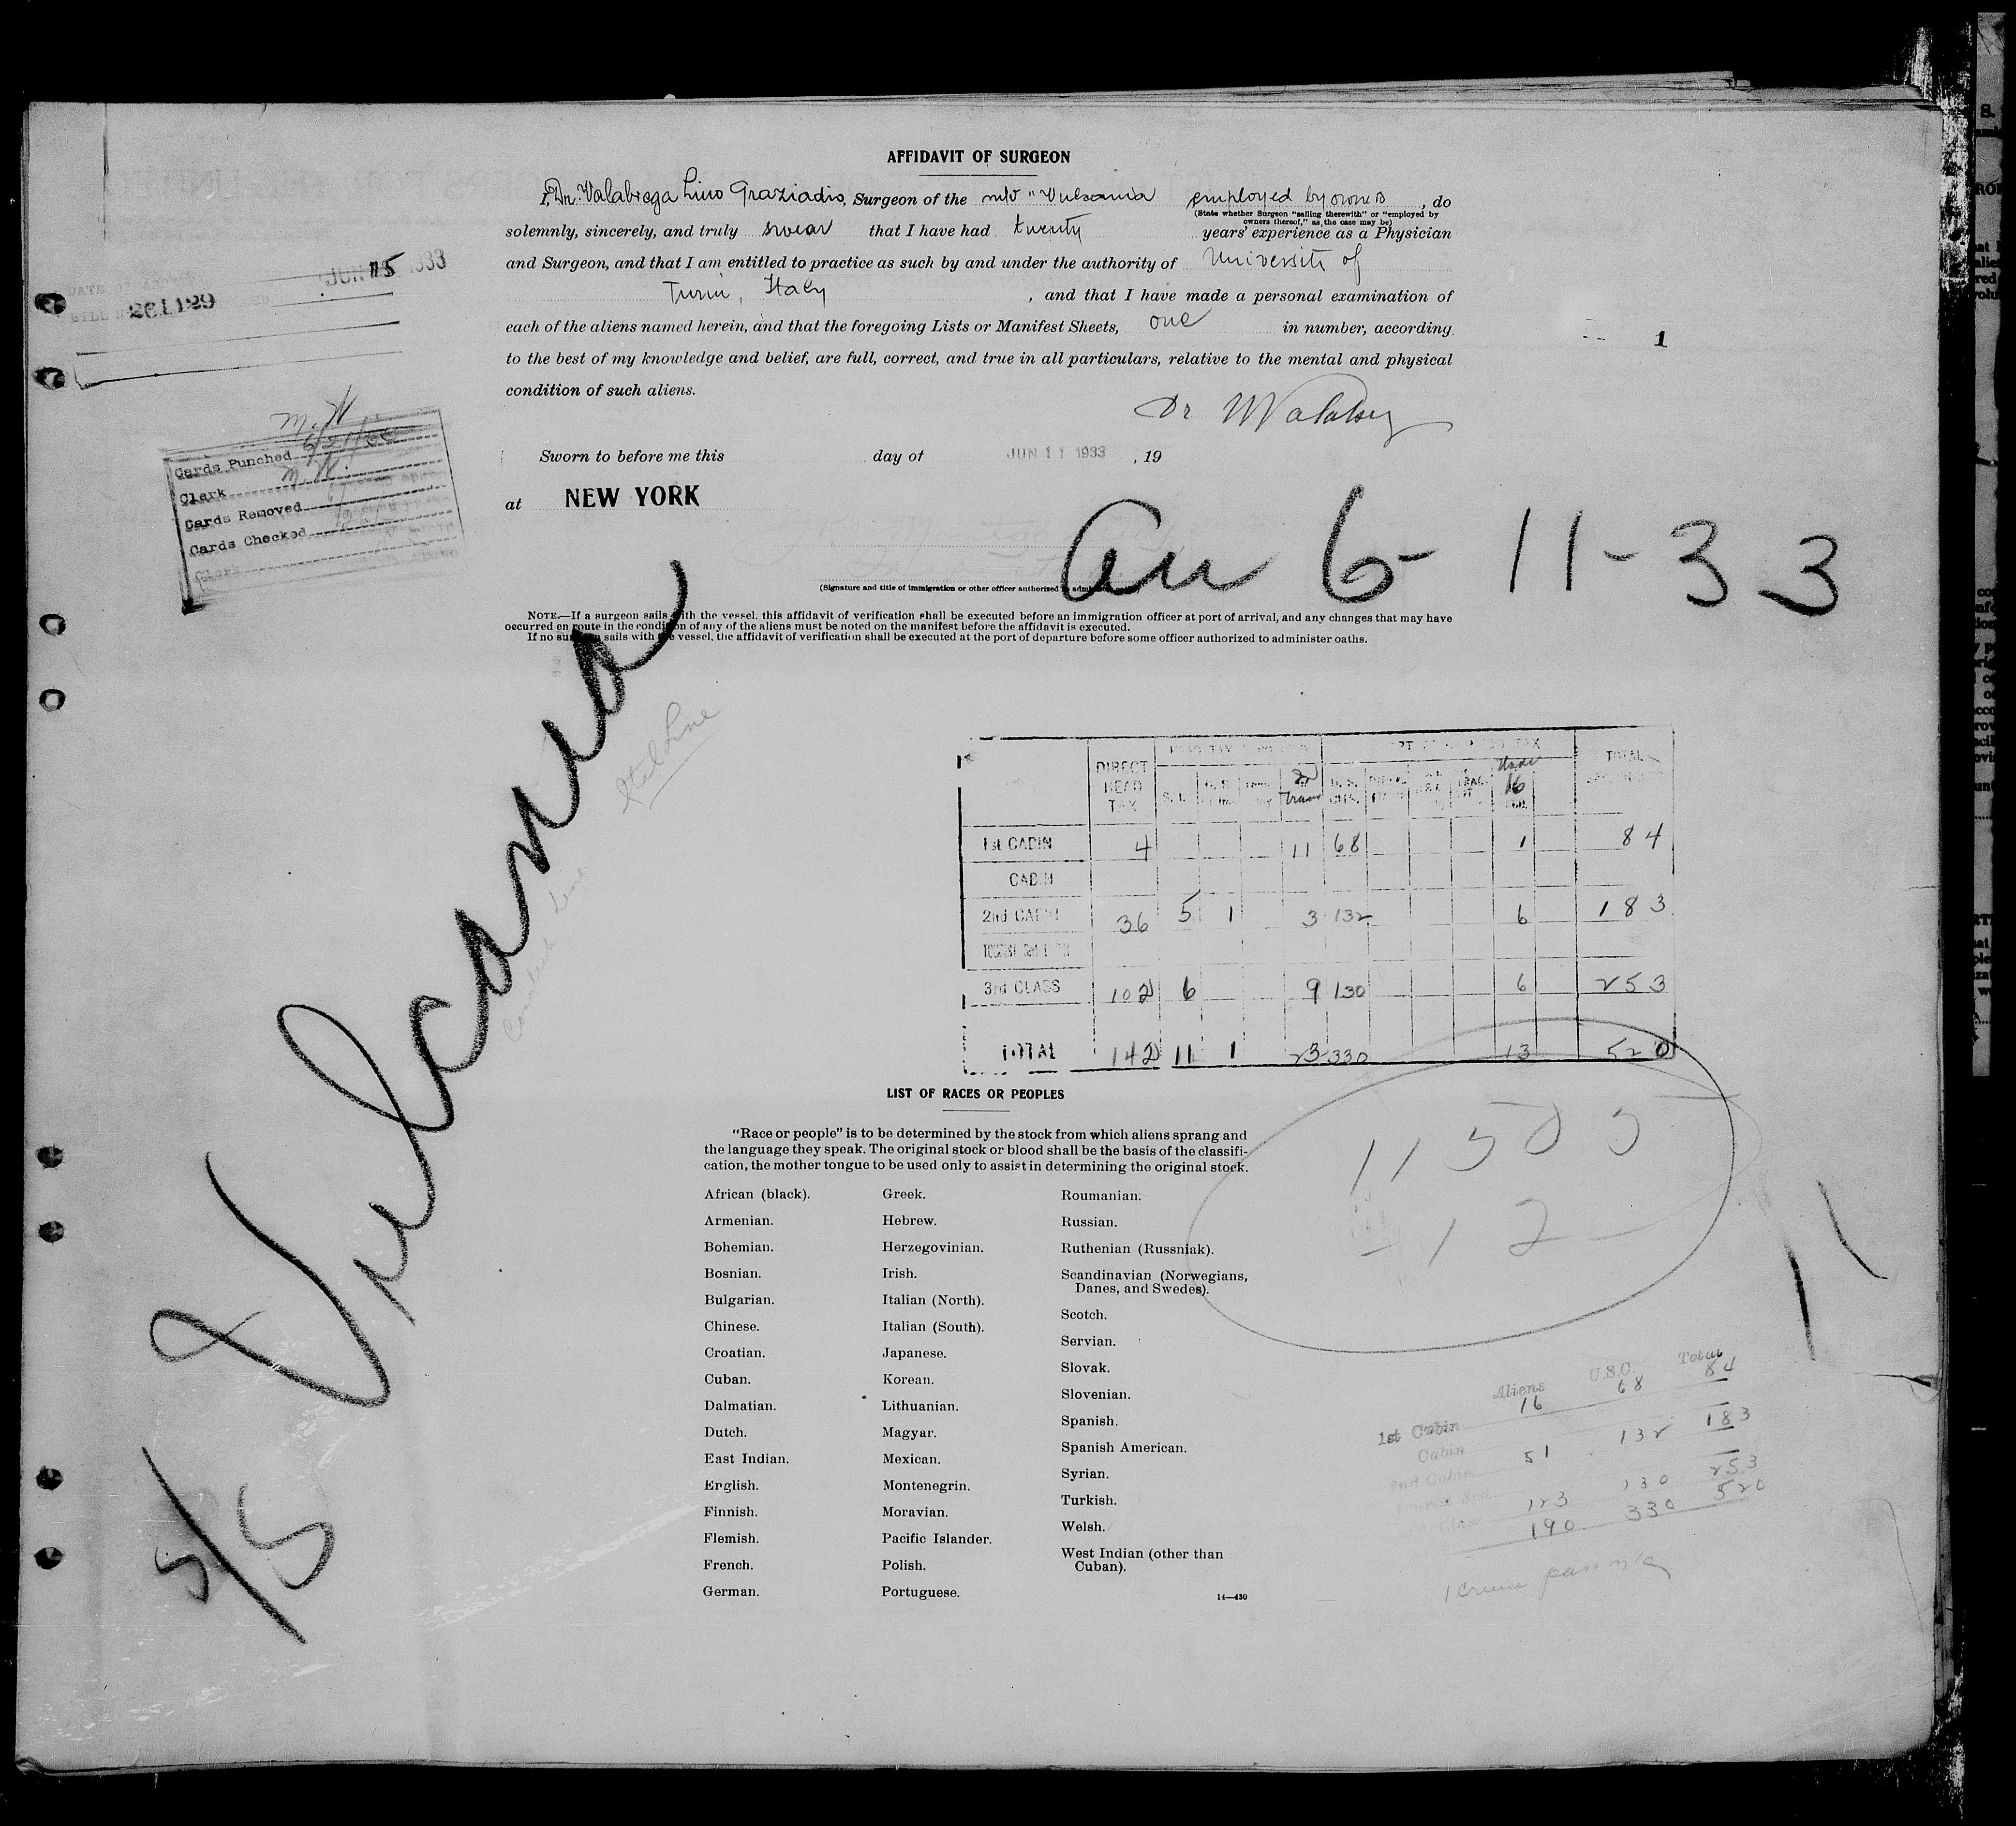 AFFIDAVIT OF SURGEON
I, Dr. Valabrega Lino Graziadio, Surgeon of the m/v "Vulcania employed by owners, do
(State whether Surgeon "sailing therewith" or "employed by
owners thereof," as the case may be)
solemnly, sincerely, and truly swear that I have had twenty years' experience as a Physician
and Surgeon, and that I am entitled to practice as such by and under the authority of Universiti of
Turin, Italy, and that I have made a personal examination of
each of the aliens named herein, and that the foregoing Lists or Manifest Sheets, one in number, according
to the best of my knowledge and belief, are full, correct, and true in all particulars, relative to the mental and physical
condition of such aliens.
1
JUN 15 1933
261129
Dr
M.K
Cards Punched 6/21/33
Clerk M.K.
Cards Removed
Cards Checked
Clerk
Sworn to before me this day of JUN 11 1933, 19
at NEW YORK
arr 6-11-33
(Signature and title of immigration or other officer authorized to
NOTE.—If a surgeon sails with the vessel, this affidavit of verification shall be executed before an immigration officer at port of arrival, and any changes that may have
occurred en route in the condition of any of the aliens must be noted on the manifest before the affidavit is executed.
If no surgeon sails with the vessel, the affidavit of verification shall be executed at the port of departure before some officer authorized to administer oaths.
S/S Vulcania
Ital Line
Cosulich Line
DIRECT HEAD TAX
Under 16
TOTAL
1st CABIN 4 11 68 1 84
CABIN
2nd CABIN 36 5 1 3 132 6 183
3rd CLASS 102 6 9 130 6 253
TOTAL 142 11 1 23 330 13 520
11505
- 12
LIST OF RACES OR PEOPLES
"Race or people" is to be determined by the stock from which aliens sprang and
the language they speak. The original stock or blood shall be the basis of the classifi-
cation, the mother tongue to be used only to assist in determining the original stock.
African (black).
Armenian.
Bohemian.
Bosnian.
Bulgarian.
Chinese.
Croatian.
Cuban.
Dalmatian.
Dutch.
East Indian.
English.
Finnish.
Flemish.
French.
German.
Greek.
Hebrew.
Herzegovinian.
Irish.
Italian (North).
Italian (South).
Japanese.
Korean.
Lithuanian.
Magyar.
Mexican.
Montenegrin.
Moravian.
Pacific Islander.
Polish.
Portuguese.
Roumanian.
Russian.
Ruthenian (Russniak).
Scandinavian (Norwegians,
Danes, and Swedes).
Scotch.
Servian.
Slovak.
Slovenian.
Spanish.
Spanish American.
Syrian.
Turkish.
Welsh.
West Indian (other than
Cuban).
14—430
Aliens U.S.C. Total
1st Cabin 16 68 84
Cabin
2nd Cabin 51 132 183
123 130 253
190 330 520
1 cruise pass